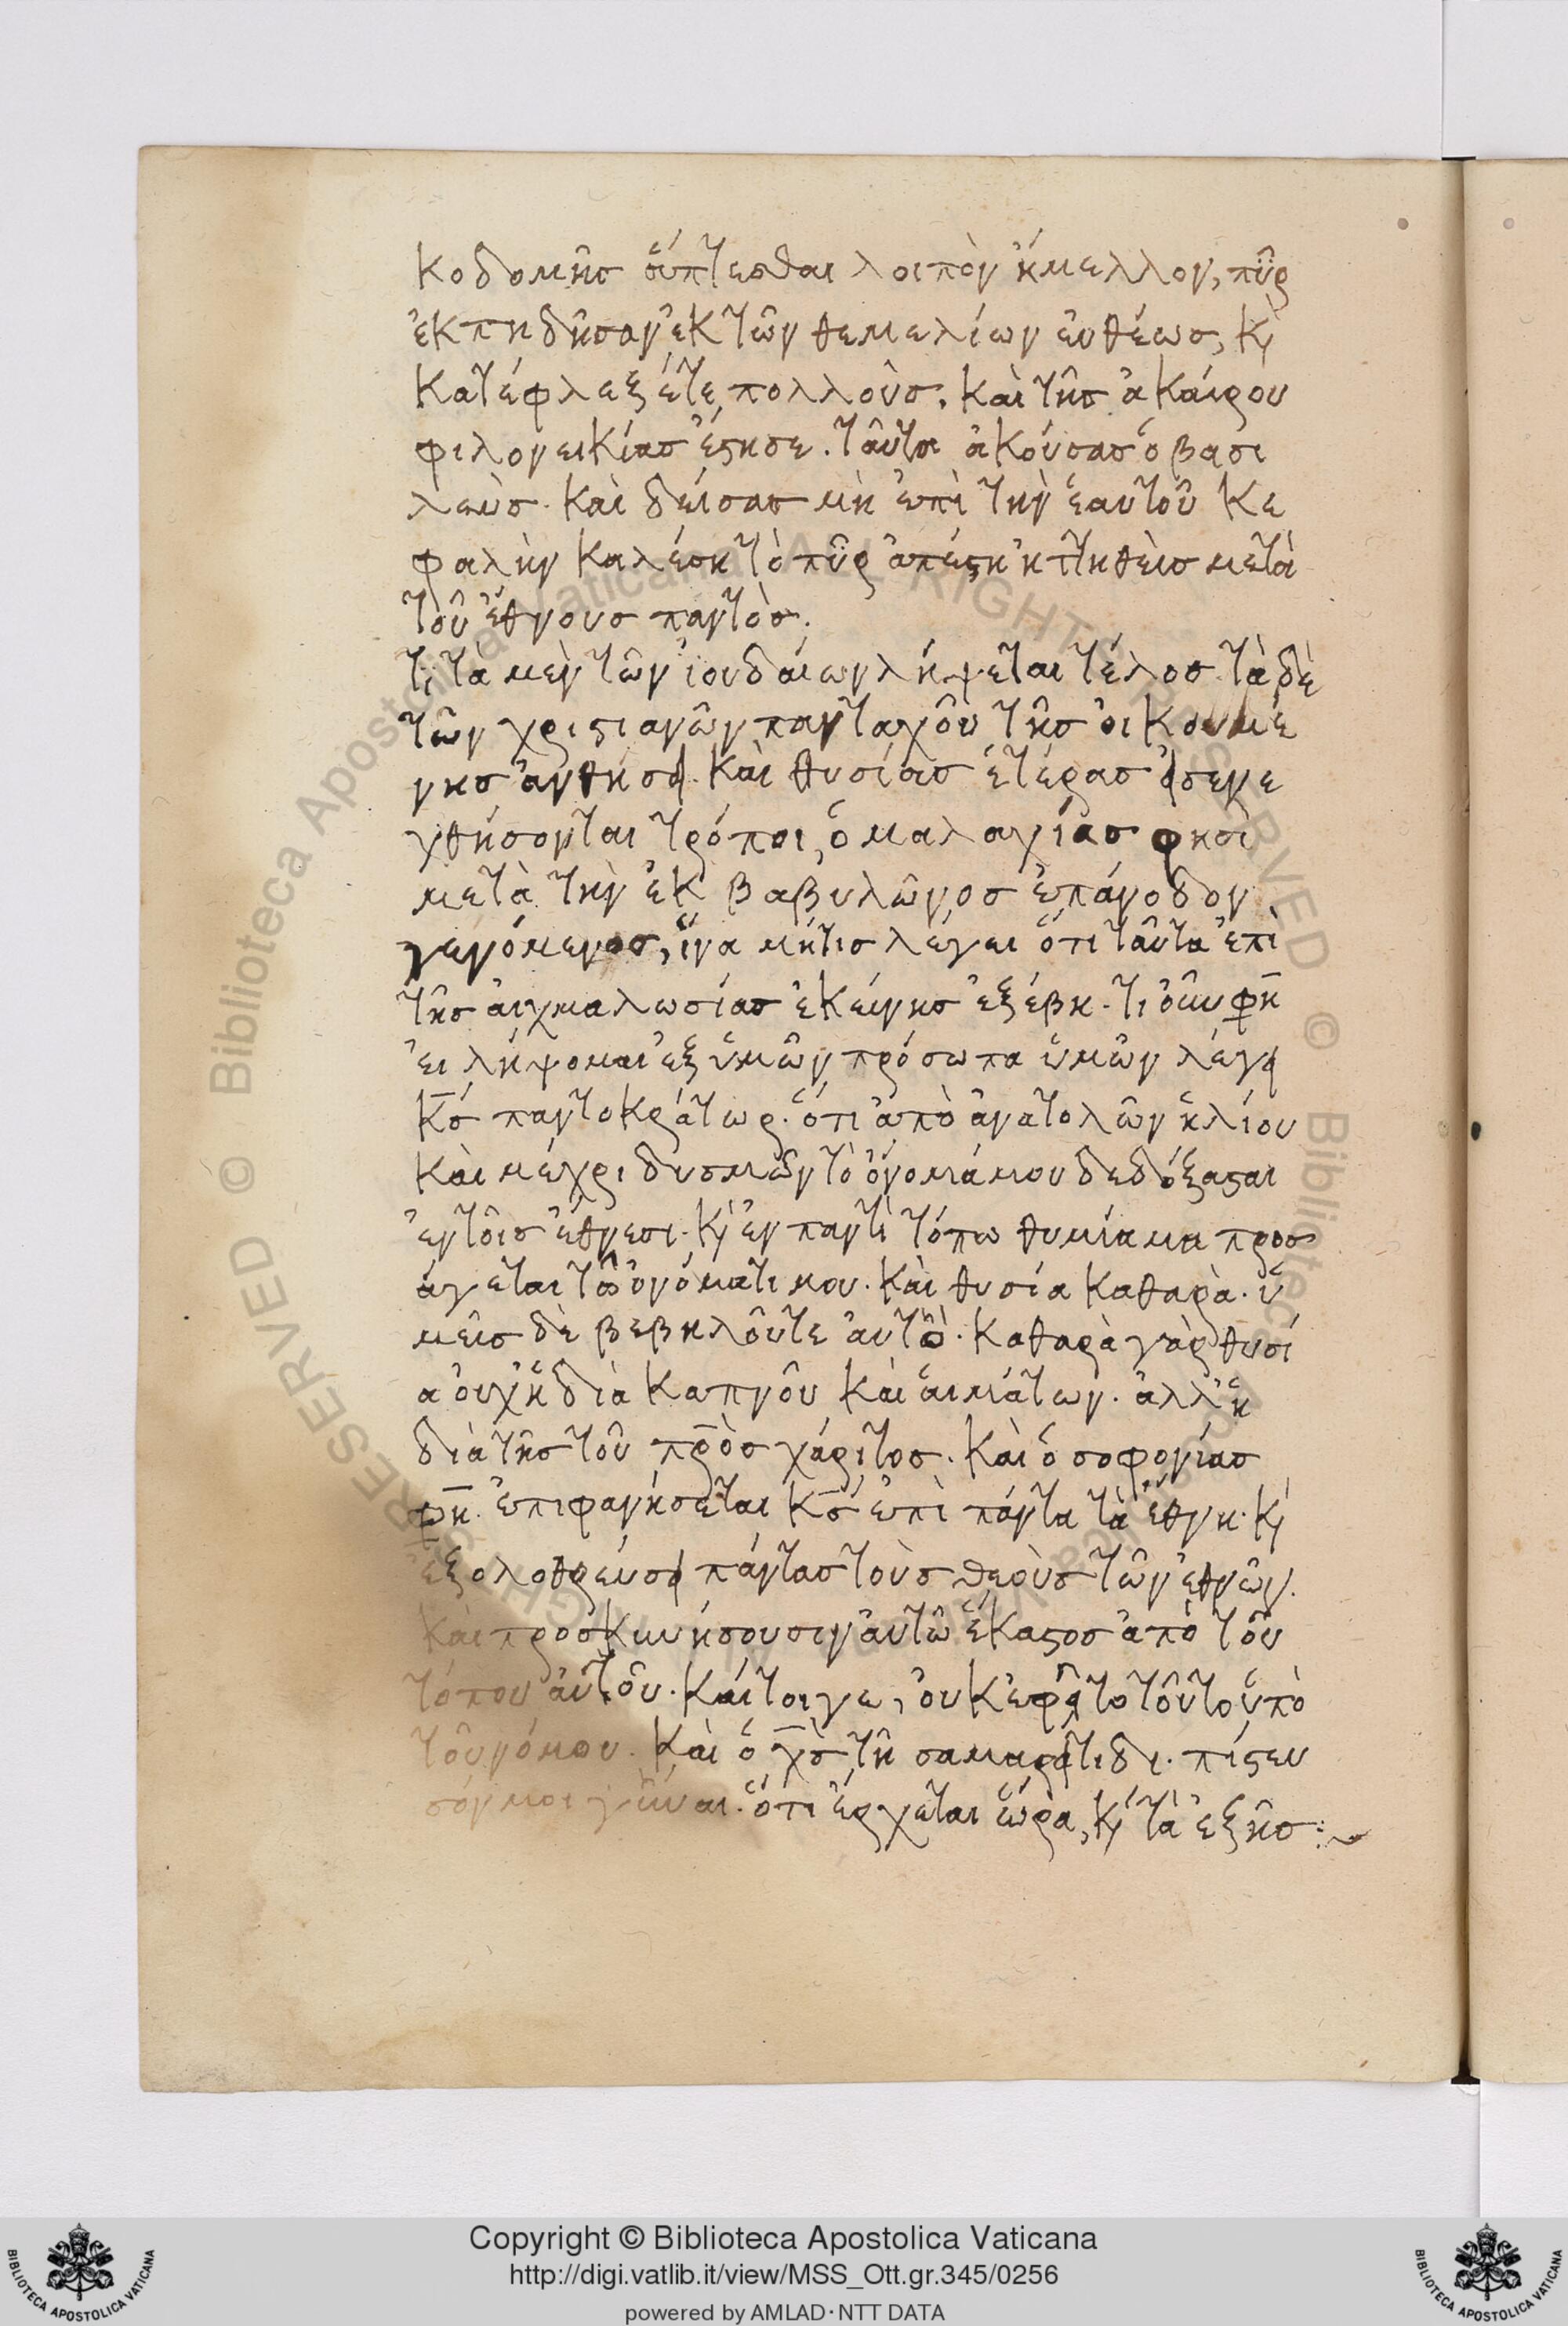 κοδομῆς ἅπτεσθαι λοιπὸν ἤμελλον, πῦρ
ἐκπηδῆσαν ἐκ τῶν θεμελίων εὐθέως, κ̀
κατέφλεξέ τε πολλοὺς, καὶ τῆς ἀκαίρου
φιλονεικίας ἔστησε. ταῦτα ἀκούσας ὁ βασι
λεὺς. καὶ δείσας μὴ ἐπὶ τὴν ἑαυτοῦ κε
φαλὴν καλέση τὸ πῦρ ἀπέστη ἡττηθεὶς μετὰ
τοῦ ἔθνους παντὸς.
τὰ μὲν τῶν ἰουδαίων λήψεται τέλος. τὰ δὲ
τῶν χριστιανῶν πανταχοῦ τῆς οἰκουμέ
νης ἀνθήσει. καὶ θυσίας ἑτέρας εἰσενε
χθήσονται τρόποι, ὁ μαλαχίας φησὶ
μετὰ τὴν ἐκ βαβυλῶνος ἐπάνοδον
γενόμενος, ἵνα μήτις λέγει ὅτι ταῦτα ἐπὶ
τῆς αἰχμαλωσίας ἐκείνης ἐξέβη. τί οὖν φη̄
εἰ λήψομαι ἐξ ὑμῶν πρόσωπα ὑμῶν λέγει
κ̄ς παντοκράτωρ. ὅτι ἀπὸ ἀνατολῶν ἡλίου
καὶ μέχρι δυσμῶν τὸ ὄνομά μου δεδόξασται
ἐν τοῖς ἔθνεσι. κ̀ ἐν παντὶ τόπω θυμίαμα προσ
άγεται τῶ ὀνόματι μου. καὶ θυσία καθαρὰ. ὑ
μεῖς δὲ βεβηλοῦτε αὐτὸ. καθαρὰ γὰρ θυσί
α οὐχ ἡ διὰ καπνοῦ καὶ αἱμάτων. ἀλλ' ἡ
διὰ τῆς τοῦ π̄ρὸς χάριτος. καὶ ὁ σοφονίας
φη̄. ἐπιφανήσεται κ̄ς ἐπὶ πάντα τὰ ἔθνη. κ̀
ἐξολοθρεύσει πάντας τοὺς θεοὺς τῶν ἐθνῶν.
καὶ προσκυνήσουσιν αὐτῶ ἕκαστος ἀπὸ τοῦ
τόπου αὐτοῦ. καίτοιγε, οὐκ ἐφεῖτο τοῦτο ὑπὸ
τοῦ νόμου. καὶ ὁ χ̄ς τῆ σαμαρείτιδι. πίστευ
σόν μοι γύναι. ὅτι ἔρχεται ὥρα, κ̀ τὰ ἑξῆς:~
Copyright © Biblioteca Apostolica Vaticana
http://digi.vatlib.it/view/MSS_Ott.gr.345/0256
powered by AMLAD·NTT DATA